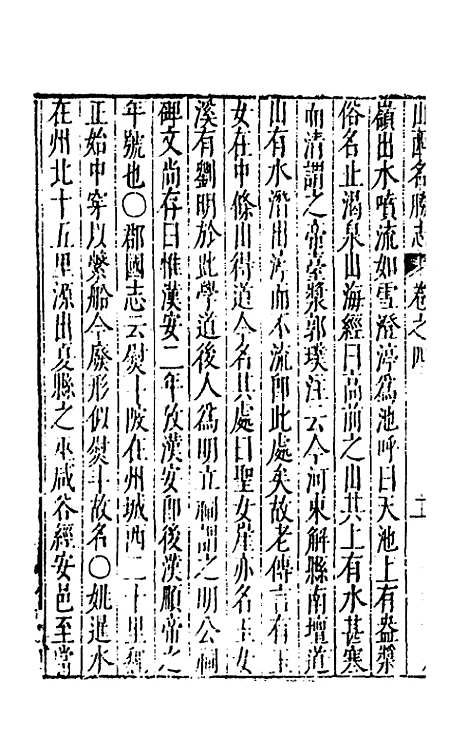 山西名勝志 卷之四
嶺出水噴流如雪澄渟爲池呼曰天池上有盎漿
俗名止渴泉山海經曰高前之山其上有水甚寒
而清謂之帝臺漿郭璞注云今河東解縣南壇道
山有水潛出渟而不流卽此處矣故老傳言有玉
女在中條山得道今名其處曰聖女崖亦名玉女
溪有劉明於此學道後人爲明立祠謂之明公祠
碑文尚存曰惟漢安二年故漢安卽後漢順帝之
年號也○郡國志云熨斗陂在州城西二十里魏
正始中穿以繫船今廢形似熨斗故名○姚暹水
在州北十五里源出夏縣之巫咸谷經安邑至當